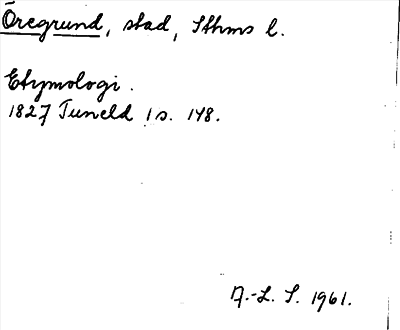 Öregrund, stad, Sthms l.
Etymologi.
1827 Tuneld I s. 148.
A.-L. S. 1961.